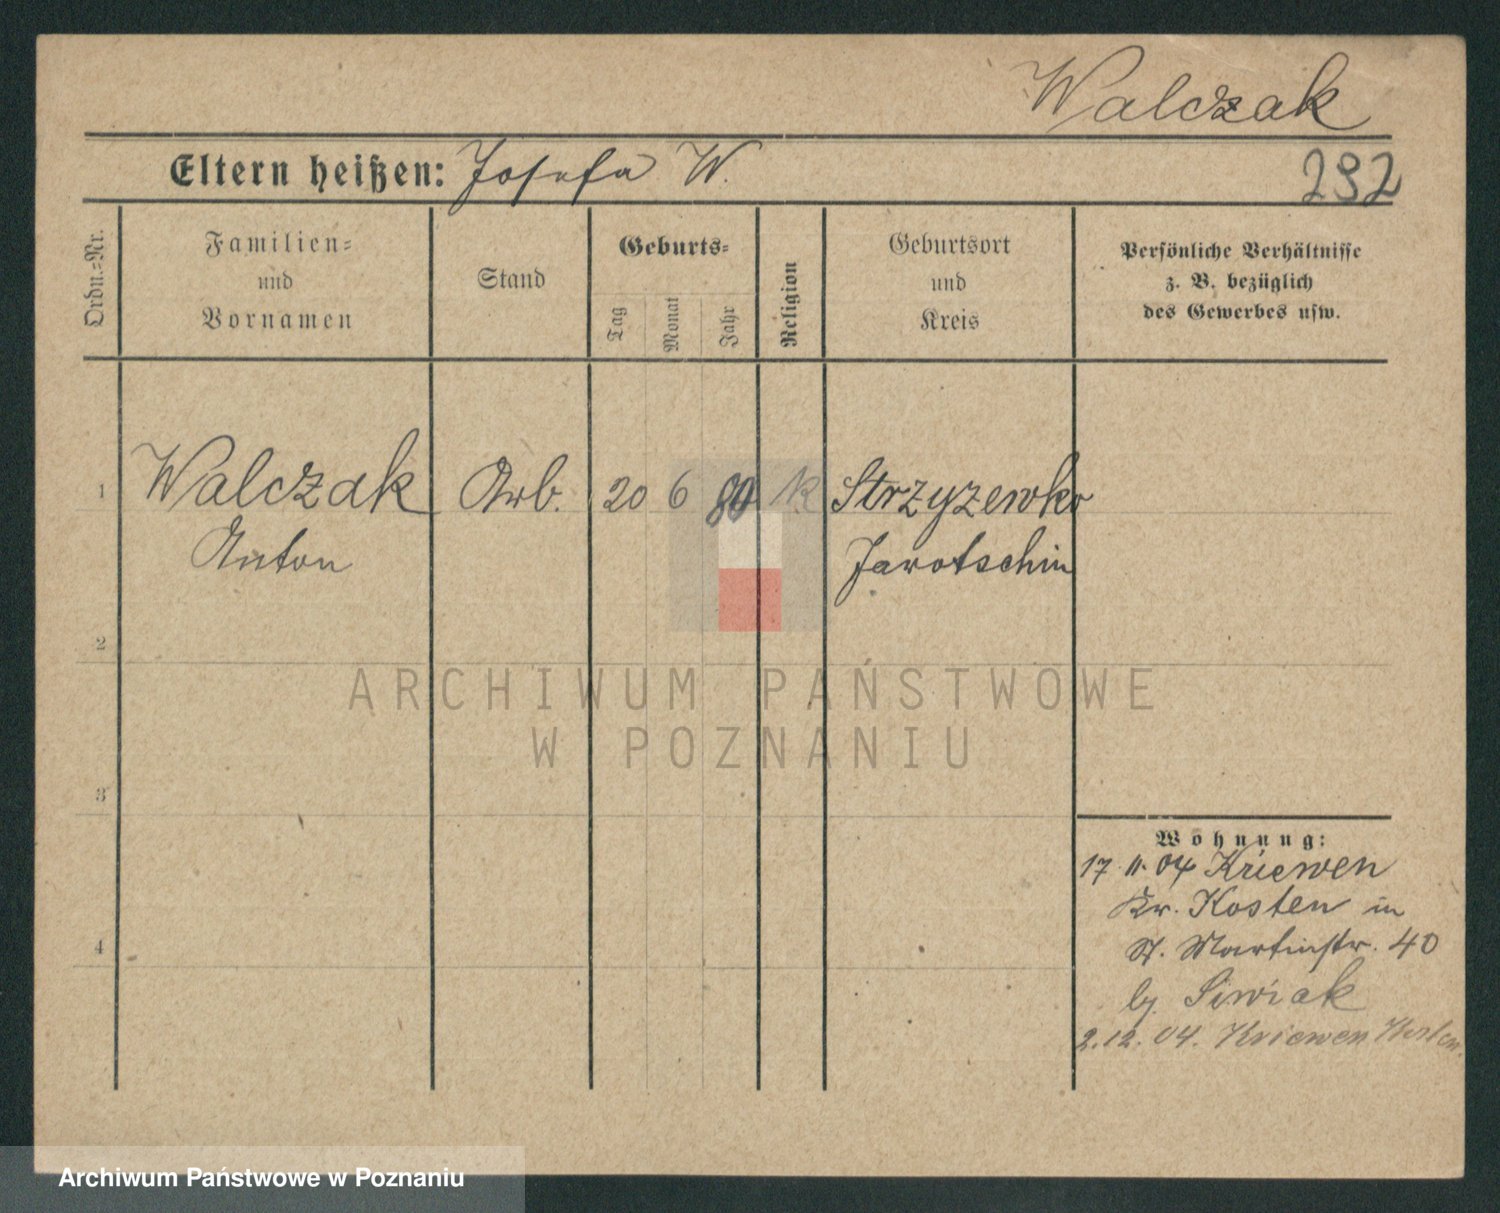 Walczak
Eltern heißen: Josefa W.
292
Ordn.=Nr.
Familien=
und
Vornamen
Stand
Geburts=
Tag
Monat
Jahr
Religion
Geburtsort
und
Kreis
Persönliche Verhältnisse
z. B. bezüglich
des Gewerbes usw.
1 Walczak Arb. 20 6 80 K Strzyzewko
Anton Jarotschin
2
3
4
Wohnung:
17. 11. 04 Kriewen
Kr. Kosten in
St. Martinstr. 40
by. Siwiak
2.12.04. Kriewen Kosten.
ARCHIWUM PAŃSTWOWE
W POZNANIU
Archiwum Państwowe w Poznaniu